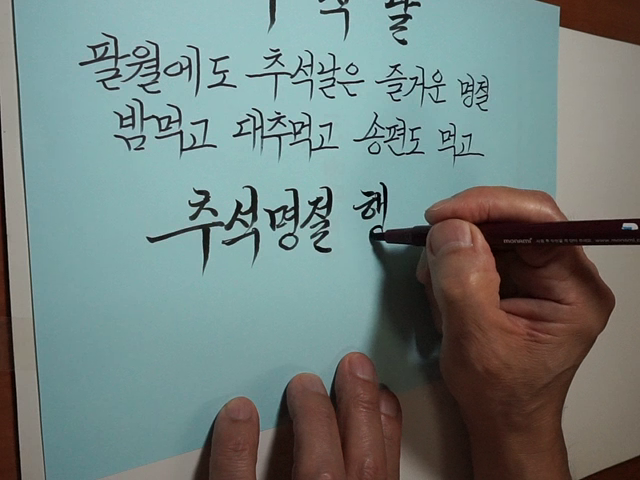 추석날
팔월에도 추석날은 즐거운 명절
밤먹고 대추먹고 송편도 먹고
추석명절 행
monami